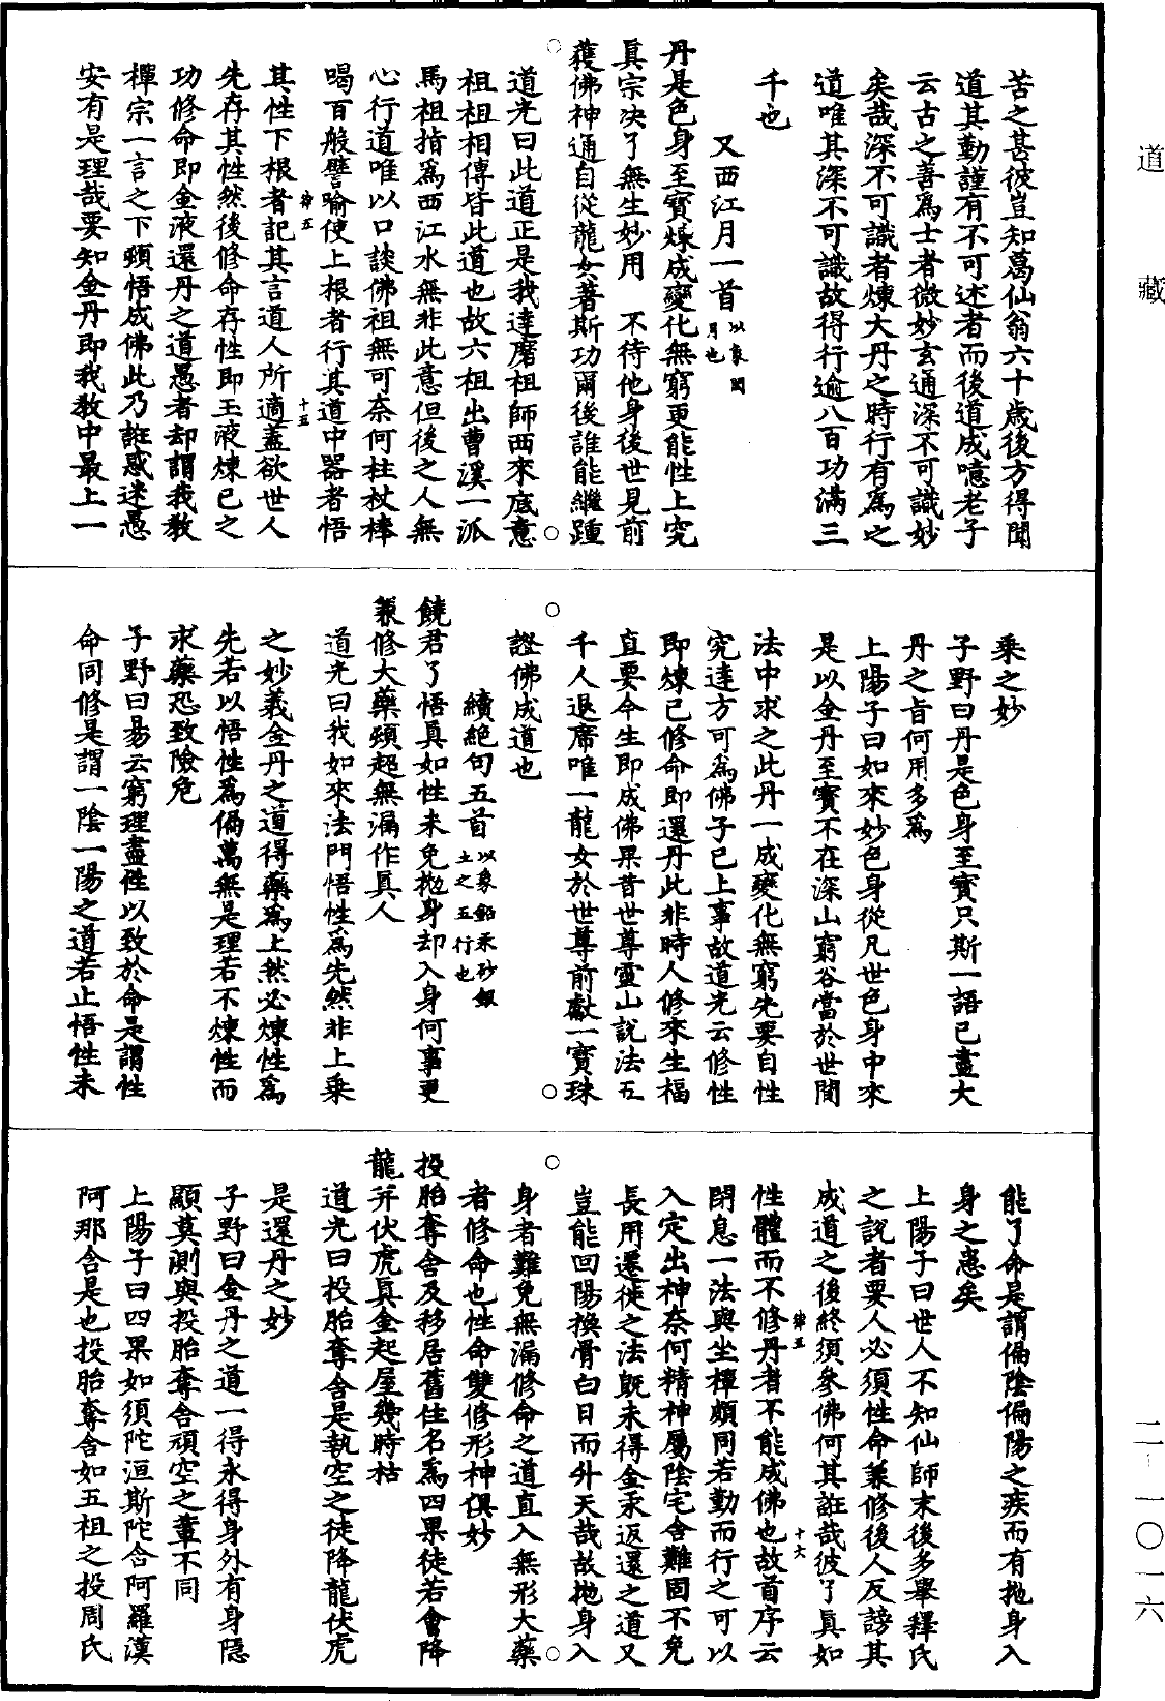 苦之甚彼豈知葛仙翁六十歲後方得聞
道其勤謹有不可述者而後道成噫老子
云古之善爲士者微妙玄通深不可識妙
矣哉深不可識者煉大丹之時行有爲之
道唯其深不可識故得行逾八百功滿三
千也
又西江月一首以象閏月也
丹是色身至寶煉成變化無窮更能性上究
真宗决了無生妙用　不待他身後世見前
獲佛神通自從龍女著斯功爾後誰能繼踵
道光曰此道正是我達磨祖師西來底意
祖祖相傳皆此道也故六祖出曹溪一派
馬祖指爲西江水無非此意但後之人無
心行道唯以口談佛祖無可奈何柱杖棒
喝百般譬喻使上根者行其道中器者悟
律五　十五
其性下根者記其言道人所適蓋欲世人
先存其性然後修命存性即玉液煉已之
功修命即金液還丹之道愚者却謂我教
禪宗一言之下頓悟成佛此乃誑惑迷愚
安有是理哉要知金丹即我教中最上一
乘之妙
子野曰丹是色身至寶只斯一語已盡大
丹之旨何用多爲
上陽子曰如來妙色身從凡世色身中來
是以金丹至寶不在深山窮谷當於世間
法中求之此丹一成變化無窮先要自性
究達方可爲佛子已上事故道光云修性
即煉己修命即還丹此非時人修來生福
直要今生即成佛果昔世尊靈山說法五
千人退席唯一龍女於世尊前獻一寶珠
證佛成道也
續絕句五首以象鉛汞砂銀土之五行也
饒君了悟真如性未免拋身却入身何事更
兼修大藥頓超無漏作真人
道光曰我如來法門悟性爲先然非上乘
之妙義金丹之道得藥爲上然必煉性爲
先若以悟性爲偏萬無是理若不煉性而
求藥恐致險危
子野曰易云窮理盡性以致於命是謂性
命同修是謂一陰一陽之道若止悟性未
能了命是謂偏陰偏陽之疾而有拋身入
身之患矣
上陽子曰世人不知仙師末後多舉釋氏
之說者要人必須性命兼修後人反謗其
成道之後終須參佛何其誑哉彼了真如
律五　十六
性體而不修丹者不能成佛也故首序云
閉息一法與坐禪頗同若勤而行之可以
入定出神奈何精神屬陰宅舍難固不免
長用遷徙之法既未得金汞返還之道又
豈能回陽換骨白日而升天哉故拋身入
身者難免無漏修命之道直入無形大藥
者修命也性命雙修形神俱妙
投胎奪舍及移居舊住名爲四果徒若會降
龍并伏虎真金起屋幾時枯
道光曰投胎奪舍是執空之徒降龍伏虎
是還丹之妙
子野曰金丹之道一得永得身外有身隱
顯莫測與投胎奪舍頑空之輩不同
上陽子曰四果如須陀洹斯陀含阿羅漢
阿那含是也投胎奪舍如五祖之投周氏
道藏
二—一〇一六